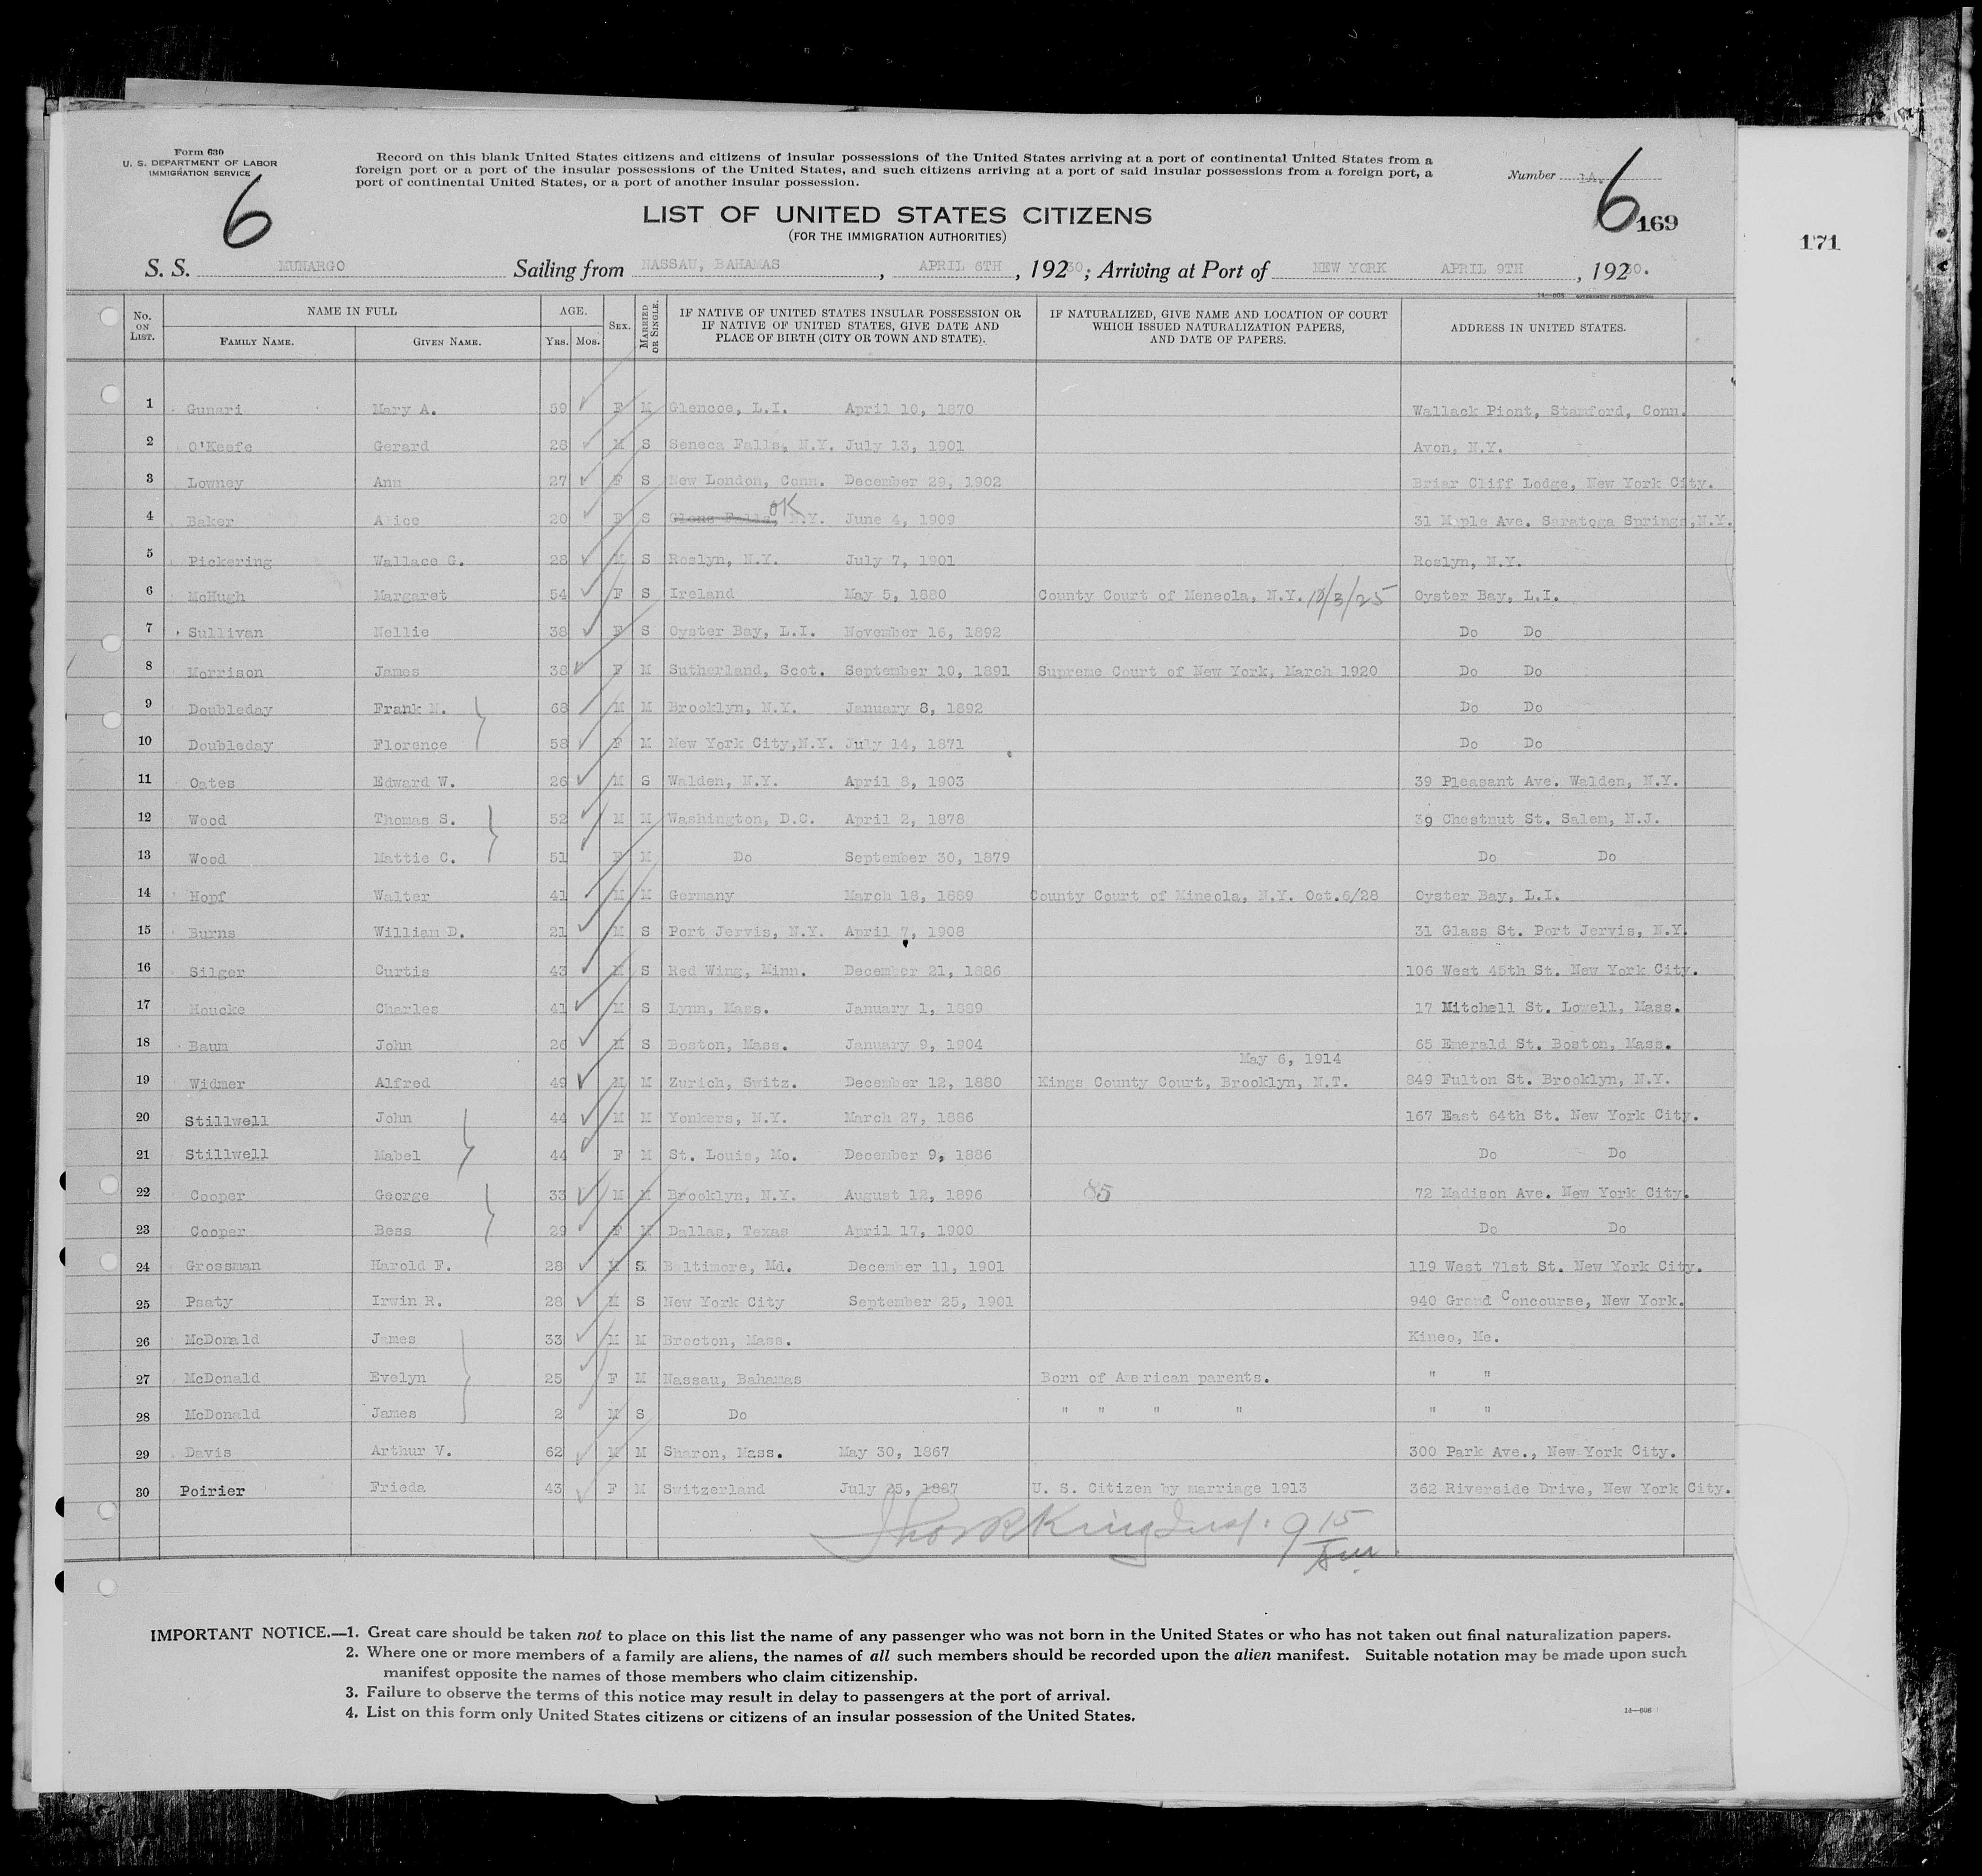 Form 630
U. S. DEPARTMENT OF LABOR
IMMIGRATION SERVICE
6
Record on this blank United States citizens and citizens of insular possessions of the United States arriving at a port of continental United States from a
foreign port or a port of the insular possessions of the United States, and such citizens arriving at a port of said insular possessions from a foreign port, a
port of continental United States, or a port of another insular possession.
Number 1A.
6 169
171
LIST OF UNITED STATES CITIZENS
(FOR THE IMMIGRATION AUTHORITIES)
S. S. MUNARGO Sailing from NASSAU, BAHAMAS, APRIL 6TH, 19230; Arriving at Port of NEW YORK APRIL 9TH, 19230.
14—606 GOVERNMENT PRINTING OFFICE
No. ON LIST. NAME IN FULL FAMILY NAME. GIVEN NAME. AGE. YRS. MOS. SEX. MARRIED OR SINGLE. IF NATIVE OF UNITED STATES INSULAR POSSESSION OR IF NATIVE OF UNITED STATES, GIVE DATE AND PLACE OF BIRTH (CITY OR TOWN AND STATE). IF NATURALIZED, GIVE NAME AND LOCATION OF COURT WHICH ISSUED NATURALIZATION PAPERS, AND DATE OF PAPERS. ADDRESS IN UNITED STATES.
1 Gunari Mary A. 59 F M Glencoe, L.I. April 10, 1870 Wallack Piont, Stamford, Conn.
2 O'Keefe Gerard 28 M S Seneca Falls, N.Y. July 13, 1901 Avon, N.Y.
3 Lowney Ann 27 F S New London, Conn. December 29, 1902 Briar Cliff Lodge, New York City.
4 Baker Alice 20 F S Glens Falls, N.Y. OK June 4, 1909 31 Maple Ave. Saratoga Springs, N.Y.
5 Pickering Wallace G. 28 M S Roslyn, N.Y. July 7, 1901 Roslyn, N.Y.
6 McHugh Margaret 54 F S Ireland May 5, 1880 County Court of Meneola, N.Y. 10/3/25 Oyster Bay, L.I.
7 Sullivan Nellie 38 F S Oyster Bay, L.I. November 16, 1892 Do Do
8 Morrison James 38 F M Sutherland, Scot. September 10, 1891 Supreme Court of New York, March 1920 Do Do
9 Doubleday Frank N. 68 M M Brooklyn, N.Y. January 8, 1892 Do Do
10 Doubleday Florence 58 F M New York City, N.Y. July 14, 1871 Do Do
11 Oates Edward W. 26 M S Walden, N.Y. April 8, 1903 39 Pleasant Ave. Walden, N.Y.
12 Wood Thomas S. 52 M M Washington, D.C. April 2, 1878 39 Chestnut St. Salem, N.J.
13 Wood Mattie C. 51 F M Do September 30, 1879 Do Do
14 Hopf Walter 41 M M Germany March 18, 1889 County Court of Mineola, N.Y. Oct.6/28 Oyster Bay, L.I.
15 Burns William D. 21 M S Port Jervis, N.Y. April 7, 1908 31 Glass St. Port Jervis, N.Y.
16 Silger Curtis 43 M S Red Wing, Minn. December 21, 1886 106 West 45th St. New York City.
17 Houcke Charles 41 M S Lynn, Mass. January 1, 1889 17 Mitchell St. Lowell, Mass.
18 Baum John 26 M S Boston, Mass. January 9, 1904 65 Emerald St. Boston, Mass.
May 6, 1914
19 Widmer Alfred 49 M M Zurich, Switz. December 12, 1880 Kings County Court, Brooklyn, N.T. 849 Fulton St. Brooklyn, N.Y.
20 Stillwell John 44 M M Yonkers, N.Y. March 27, 1886 167 East 64th St. New York City.
21 Stillwell Mabel 44 F M St. Louis, Mo. December 9, 1886 Do Do
22 Cooper George 33 M M Brooklyn, N.Y. August 12, 1896 85 72 Madison Ave. New York City.
23 Cooper Bess 29 F M Dallas, Texas April 17, 1900 Do Do
24 Grossman Harold F. 28 M S Baltimore, Md. December 11, 1901 119 West 71st St. New York City.
25 Psaty Irwin R. 28 M S New York City September 25, 1901 940 Grand Concourse, New York.
26 McDonald James 33 M M Brocton, Mass. Kineo, Me.
27 McDonald Evelyn 25 F M Nassau, Bahamas Born of American parents. " "
28 McDonald James 2 M S Do " " " " " "
29 Davis Arthur V. 62 M M Sharon, Mass. May 30, 1867 300 Park Ave., New York City.
30 Poirier Frieda 43 F M Switzerland July 25, 1887 U. S. Citizen by marriage 1913 362 Riverside Drive, New York City.
King Insp. 9 15
IMPORTANT NOTICE.—1. Great care should be taken not to place on this list the name of any passenger who was not born in the United States or who has not taken out final naturalization papers.
2. Where one or more members of a family are aliens, the names of all such members should be recorded upon the alien manifest. Suitable notation may be made upon such
manifest opposite the names of those members who claim citizenship.
3. Failure to observe the terms of this notice may result in delay to passengers at the port of arrival.
4. List on this form only United States citizens or citizens of an insular possession of the United States.
14—606